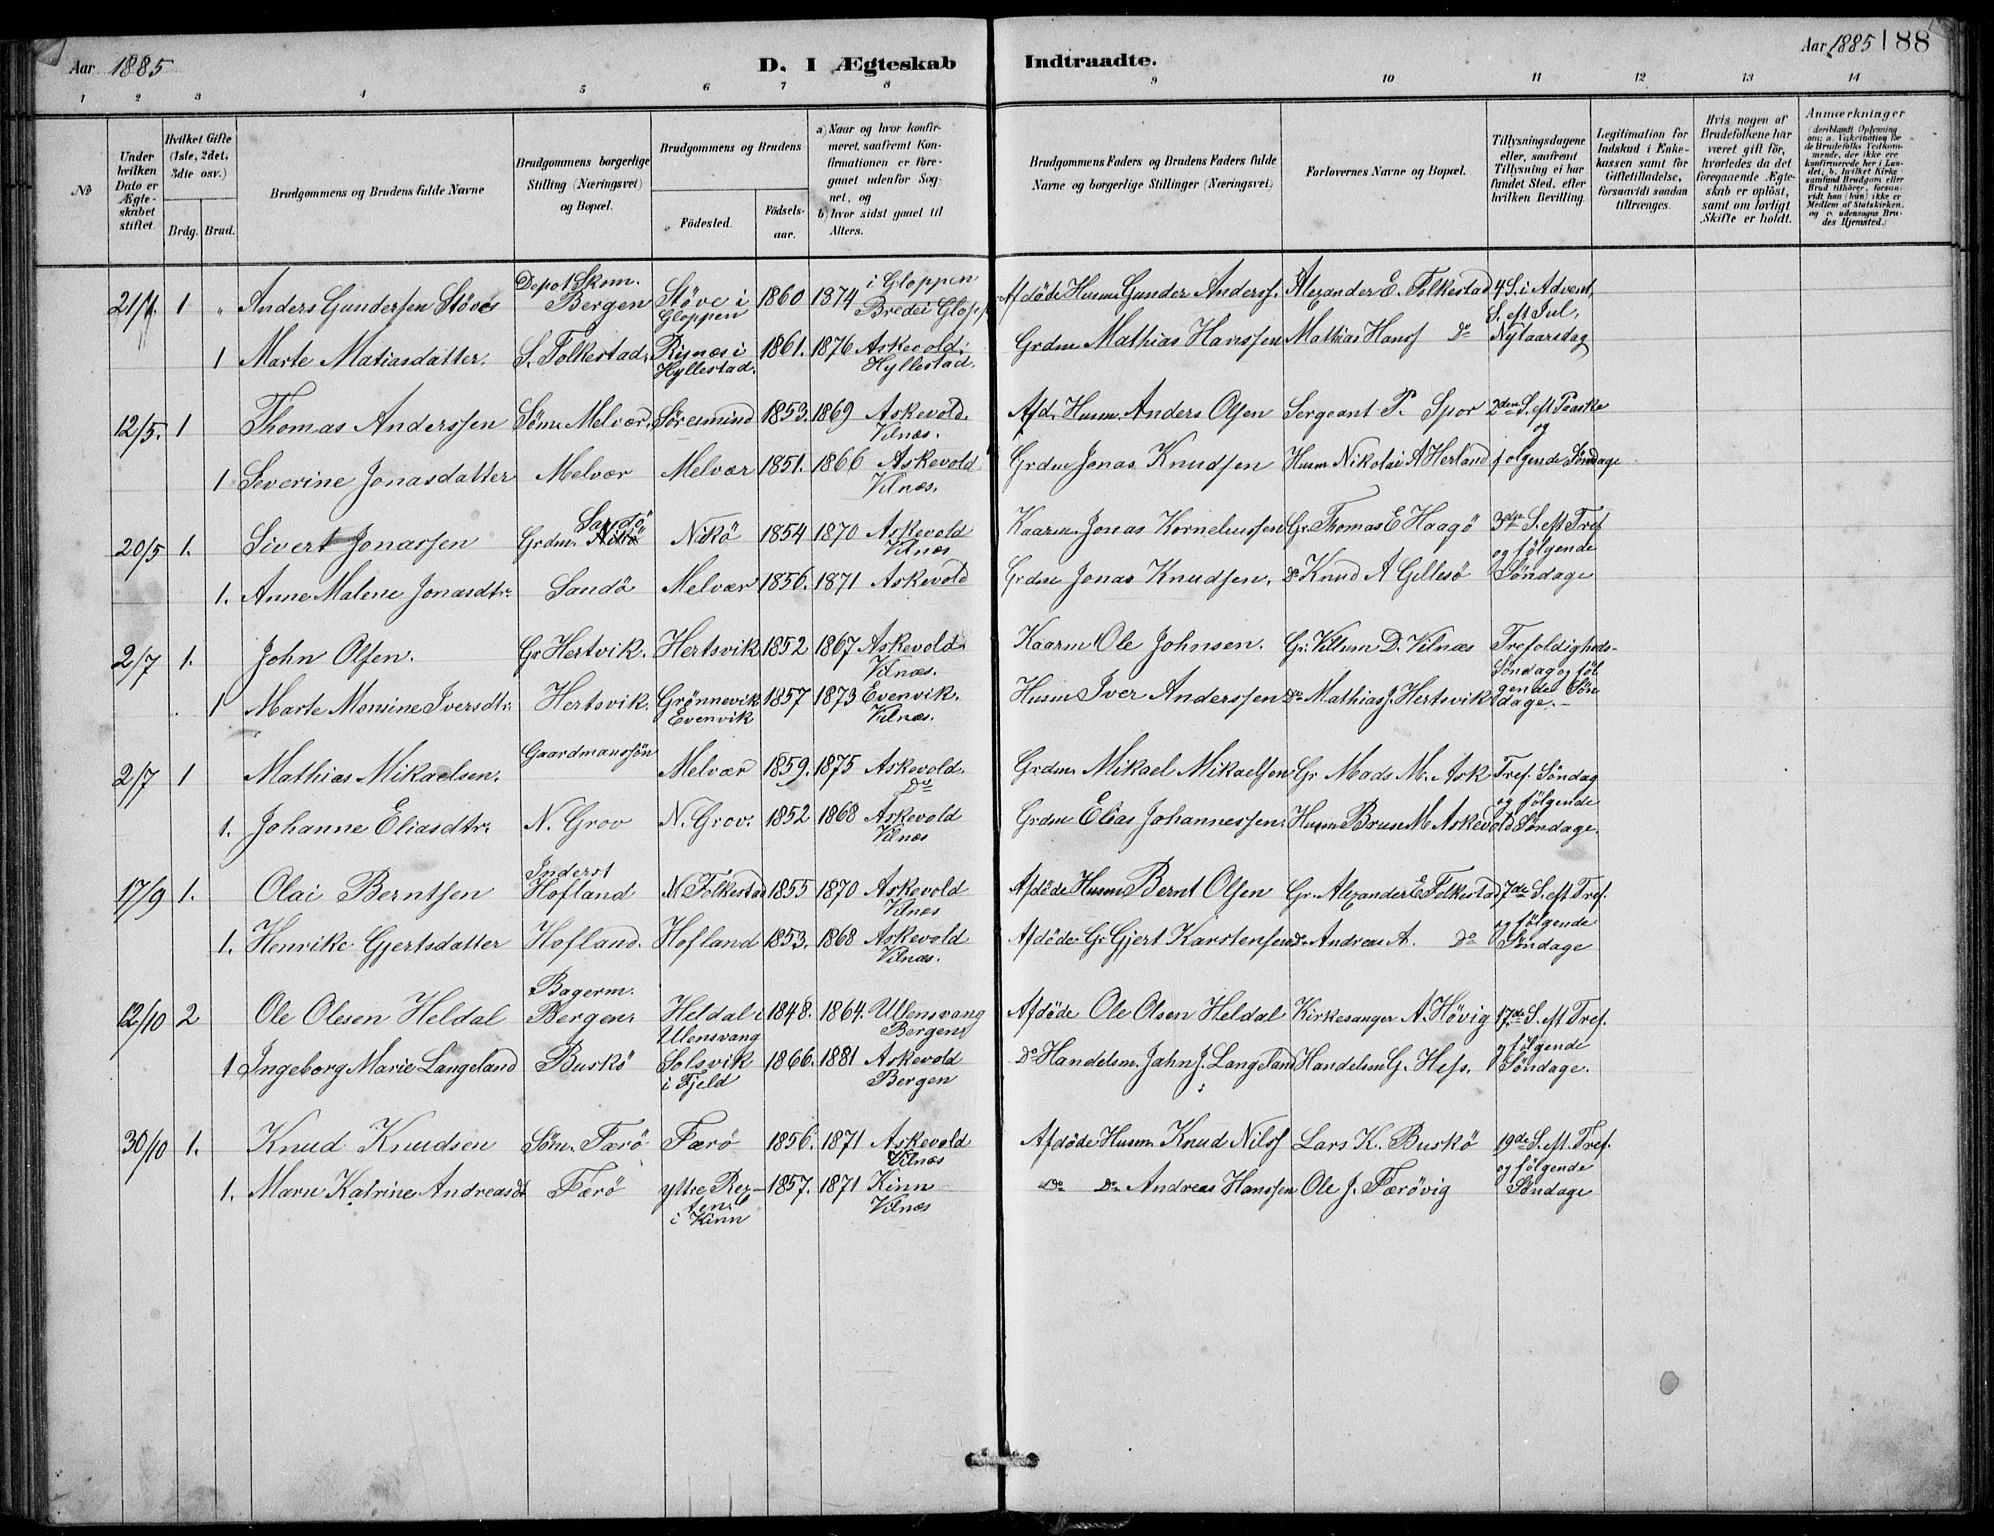 Aar 1885
D. I Ægteskab Indtraadte.
Aar 1885 188
1 2 3 4 5 6 7 8 9 10 11 12 13 14
No
Under hvilken Dato er Ægteskabet stiftet.
Hvilket Gifte (1ste, 2det, 3die osv.)
Brdg. Brud.
Brudgommens og Brudens fulde Navne
Brudgommens borgerlige Stilling (Næringsvei) og Bopæl.
Brudgommens og Brudens
Fødested.
Fødsels-aar.
a) Naar og hvor konfirmeret, saafremt Konfirmationen er foregaaet udenfor Sognet, og
b) hvor sidst gaaet til Alters.
Brudgommens Faders og Brudens Faders fulde Navne og borgerlige Stillinger (Næringsvei)
Forlovernes Navne og Bopæl.
Tillysningsdagene eller, saafremt Tillysning ei har fundet Sted, efter hvilken Bevilling.
Legitimation for Indskud i Enkekassen samt for Giftetilladelse, forsaavidt saadan tiltrænges.
Hvis nogen af Brudefolkene har været gift før, hvorledes da det foregaaende Ægteskab er opløst, samt om lovligt Skifte er holdt.
Anmærkninger
(deriblandt Oplysning om: a. Vakcination for de Brudefolks Vedkommende, der ikke ere konfirmerede her i Landet, b. hvilket Kirkesamfund Brudgom eller Brud tilhører, forsaavidt han (hun) ikke er Medlem af Statskirken, og c. udensogns Brudes Hjemsted.)
21/1. 1 „ Anders Gundersen Støve Depot Skom. Bergen Støve i Gloppen 1860 1874 i Gloppen Bredei Glopp Afdöde Husm Gunder Anderss. Alexander E. Folkestad 4 S. i Advent, S. eft Jul,
1 Marte Matiasdatter. S. Folkestad. Risnæs i Hyllestad. 1861. 1876 Askevold. Hyllestad. Grdm Mathias Hanssen Mathias Hanss Do Nytaarsdag
12/5. 1 Thomas Anderssen Söm. Melvær. Söresmind 1853. 1869 Askevold. Vilnæs. Afd. Husm. Anders Olsen Sergeant P. Spor 2den S. eft Paaske og
1 Severine Jonasdatter Melvær Melvær 1851. 1866 Askevold Vilnæs. Grdm Jonas Knudsen Husm Nikolai A Herland følgende Søndage
20/5 1. Sivert Jonassen Grdm. Nikö Sandö Nikö 1854 1870 Askevold Vilnæs Kaarm. Jonas Korneliussen Gr. Thomas E Haagö 3die S. eft Tref og følgende
1. Anne Malene Jonasdtr. Sandö Melvær 1856. 1871 Askevold Grdm Jonas Knudsen. Do Knud A Gillesö Söndage
2/7 1. John Olsen. Gr Hertvik. Hertsvik 1852 1867 Askevold Vilnæs. Kaarm Ole Johnsen. Gr. Villum D. Vilnæs Trefoldigheds-Söndag og föl
1 Marte Monsine Iversdtr. Hertsvik. Grönnevik Evenvik 1857 1873 Evenvik. Vilnæs. Husm Iver Anderssen Do Mathias J. Hertsvik gende Søndage.
2/7 1 Mathias Mikaelsen. Gaardmanssön Melvær 1859. 1875 Askevold. Do Grdm. Mikael Mikaelsen Gr Mads M. Ask Tref. Söndag og følgende
1. Johanne Eliasdtr. N. Grov N. Grov. 1852 1868 Askevold Vilnæs Grdm Elias Johannessen. Husm Brun M Askevold Söndage.
17/9 1. Olai Berntsen Inderst Hofland N Folkestad 1855 1870 Askevold Vilnæs Afdöde Husm Bernt Olsen Gr. Alexander E Folkestad 7de S. eft Tref. og følgende
1. Henrike Gjertsdatter Hofland. Hofland 1853. 1868 Askevold Vilnæs. Afdöde Gr Gjert Karstensen Do. Andreas A. Do Söndage
12/10 2 Ole Olesen Heldal Bagerm. Bergen. Heldal i Ullensvang 1848. 1864. Ullensvang Bergens Afdöde Ole Olsen Heldal Kirkesanger A. Hövig 17de S. eft Tref. og følgende
1 Ingeborg Marie Langeland Buskö Solsvik i Fjeld 1866. 1881 Askevold Bergen Do Handelsm. Jahn J. Langeland Handelsm G. Hess. Söndage.
30/10 1. Knud Knudsen Söm. Færö Færö 1856. 1871 Askevold Vilnæs Afdöde Husm. Knud Nilss Lars K. Buskö 19de S. eft. Tref. og følgende
1. Marn Katrine Andreasdt Færö ytre Rer- i Kinn 1857. 1871 Kinn Vilnæs Do Do Andreas Hanssen Ole J. Færövig Söndage